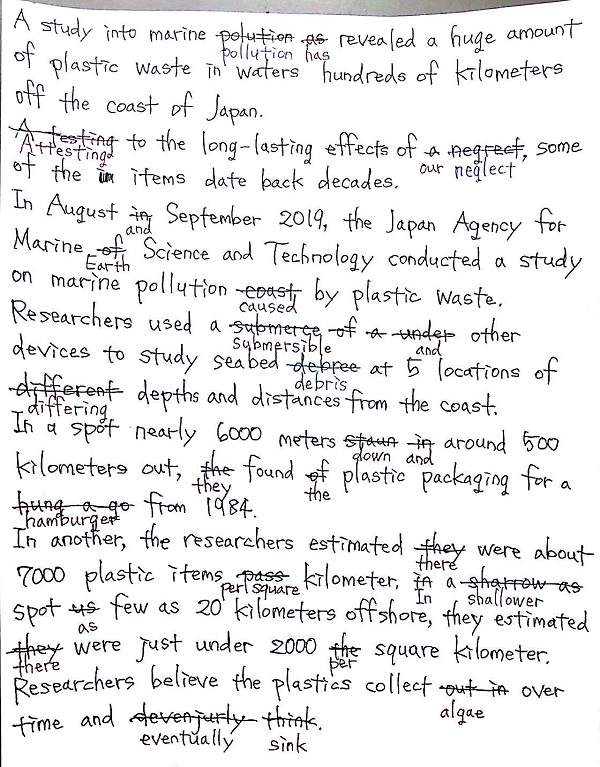 A study into marine polution as revealed a huge amount
pollution has
of plastic waste in waters hundreds of kilometers
off the coast of Japan.
A testing to the long-lasting effects of a negrect, some
Attesting our neglect
of the in items date back decades.
In August in September 2019, the Japan Agency for
and
Marine of Science and Technology conducted a study
Earth
on marine pollution coast by plastic waste.
caused
Researchers used a submerge of a under other
submersible and
devices to study seabed debree at 5 locations of
debris
different depths and distances from the coast.
differing
In a spot nearly 6000 meters staun in around 500
down and
kilometers out, the found of plastic packaging for a
they the
hung a go from 1984.
hamburger
In another, the researchers estimated they were about
there
7000 plastic items pass kilometer. in a sharrow as
per square In shallower
spot us few as 20 kilometers offshore, they estimated
as
they were just under 2000 the square kilometer.
there per
Researchers believe the plastics collect out in over
algae
time and devenjurly think.
eventually sink